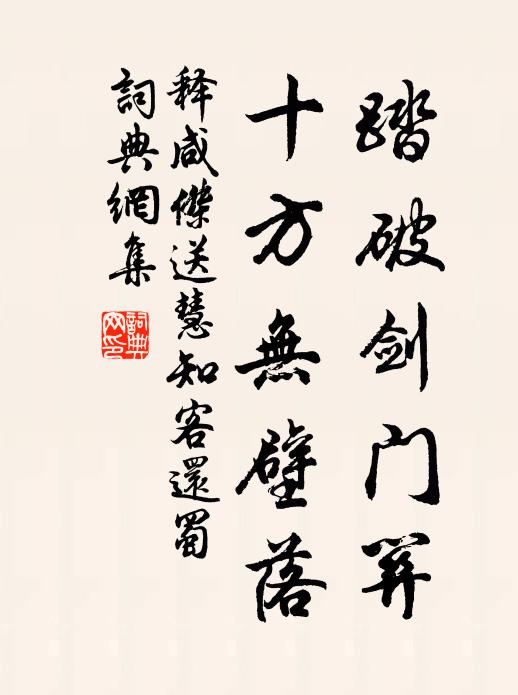 踏破剑门关
十方無壁落
释咸傑送慧知客還蜀
詞典網集
詞典網印